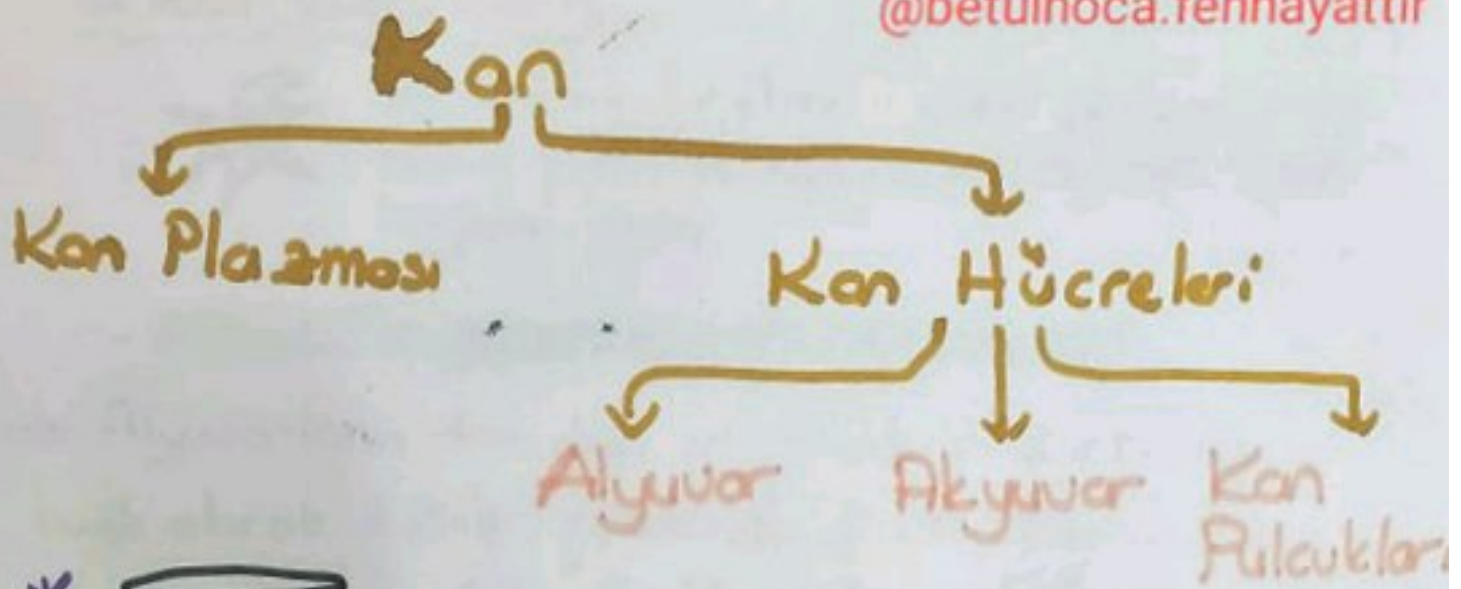 @betulhoca.fenhayattir
Kan
Kan Plazması
Kan Hücreleri
Alyuvar
Akyuvar
Kan
Pulcukları